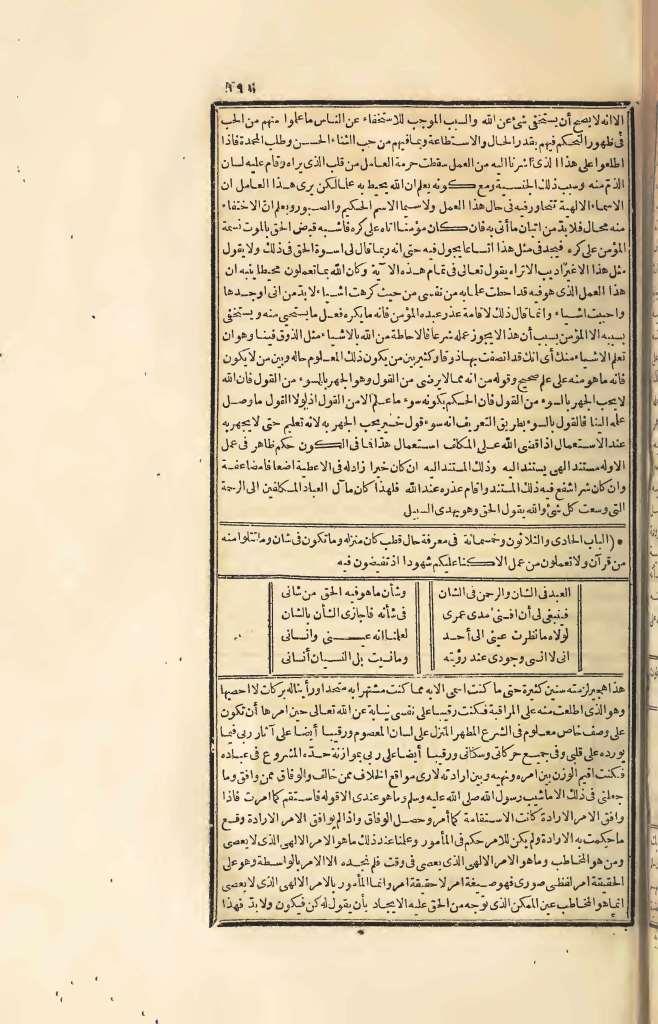 الا انه لا يصح أن يستخفى شئ عن الله والسبب الموجب للاستخفاء عن الناس ما علموا منهم من الحب
فى ظهور التحكم فيهم بقدر الحال والاستطاعة وبما فيهم من حب الثناء الحسن وطلب المحمدة فاذا
اطلعوا على هذا الذى أشرنا اليه من العمل سقطت حرمة العامل من قلب الذى يراه وقام عليه لسان
الذم منه وسبب ذلك الجنسية ومع كونه يعلم ان الله يحيط به علما لكن يرى هذا العامل ان
الاسماء الالهية تتحاور فيه فى حال هذا العمل ولا سيما الاسم الحكيم والصبور ويعلم ان الاختفاء
منه محال فلا بد من اتيان ما أتى به فان كان مؤمنا اتاه على كره فأشبه قبض الحق بالموت نسمة
المؤمن على كره فيجد فى مثل هذا اتساعا يجول فيه حتى انه ربما قال لى اسوة الحق فى ذلك ولا يقول
مثل هذا الا غير أديب الاتراه يقول تعالى فى تمام هذه الآية وكان الله بما تعملون محيطا ينبه ان
هذا العمل الذى هو فيه قد احطت علما به من نفسى من حيث كرهت اشياء لا بد من انى اوجدها
واحببت اشياء وانما قال ذلك لاقامة عذر عبده المؤمن فانه ما يكره فعل ما يستحيى منه ويستخفى
بسببه الا المؤمن بسبب أن هذا لا يجوز عمله شرعا فالاحاطة من الله بالاشياء مثل الذوق فينا وهو ان
تعلم الاشياء منك أى انك قد اتصفت بها ذوقا وكثير بين من يكون ذلك المعلوم حاله وبين من لا يكون
فانه ما هو منه على علم صحيح وقوله من انه مما لا يرضى من القول وهو الجهر بالسوء من القول فان الله
لا يحب الجهر بالسوء من القول فان الحكم بكونه سوء ما علم الا من القول اذ لولا القول ما وصل
علمه الينا فالقول بالسوء بطريق التعريف انه سوء قول خير يحب الجهر به لانه تعليم حتى لا يجهر به
عند الاستعمال اذا قضى الله على المكلف استعمال هذا فما فى الكون حكم ظاهر فى عمل
الا وله مستند الهى يستند اليه وذلك المستند اليه ان كان خيرا زاد له فى الاعطية اضعافا مضاعفة
وان كان شرا شفع فيه ذلك المستند واقام عذره عند الله فلهذا كان مآل العباد المكلفين الى الرحمة
التى وسعت كل شئ والله يقول الحق وهو يهدى السبيل
* (الباب الحادى والثلاثون وخمسمائة فى معرفة حال قطب كان منزله وما تكون فى شان وما تتلوا منه
من قرآن ولا تعملون من عمل الا كنا عليكم شهودا اذ تفيضون فيه
العبد فى الشان والرحمن فى الشان وشأن ما هو فيه الحق من شانى
فينبغى لى أن افنى مدى عمرى فى شأنه فأجازى الشأن بالشان
لولاه ما نظرت عينى الى أحد لعلمنا انه عينى وانسانى
انى لا انسى وجودى عند رؤيته وما نسيت بل النسيان أنسانى
هذا هجير لزمته سنين كثيرة حتى ما كنت اسمى الا به مما كنت مشتهرا به متحدا ورأينا له بركات لا احصيها
وهو الذى اطلعت منه على المراقبة فكنت رقيبا على نفسى نيابة عن الله تعالى حين امرها أن تكون
على وصف خاص معلوم فى الشرع المطهر المنزل على لسان المعصوم ورقيبا أيضا على آثار ربى فيما
يورده على قلبى وفى جميع حركاتى وسكناتى ورقيبا أيضا على ربى بموازنة حده المشروع فى عباده
فكنت اقيم الوزن بين امره ونهيه وبين ارادته لارى مواقع الخلاف ممن خالف والوفاق ممن وافق وما
جعلنى فى ذلك الا ما شيب رسول الله صلى الله عليه وسلم وما هو عندى الا قوله فاستقم كما امرت فاذا
وافق الامر الارادة كانت الاستقامة كما أمر وحصل الوفاق واذا لم يوافق الامر الارادة وقع
ما حكمت به الارادة ولم يكن للامر حكم فى المأمور وعلمنا عند ذلك ما هو الامر الالهى الذى لا يعصى
ومن هو المخاطب وما هو الامر الالهى الذى يعصى فى وقت فلم نجده الا الامر بالواسطة وهو على
الحقيقة امر لفظى صورى فهو صيغة امر لا حقيقة امر وانما المأمور بالامر الالهى الذى لا يعصى
انما هو المخاطب عين الممكن الذى توجه من الحق عليه الايجاد بأن يقول له كن فيكون ولا بد فهذا